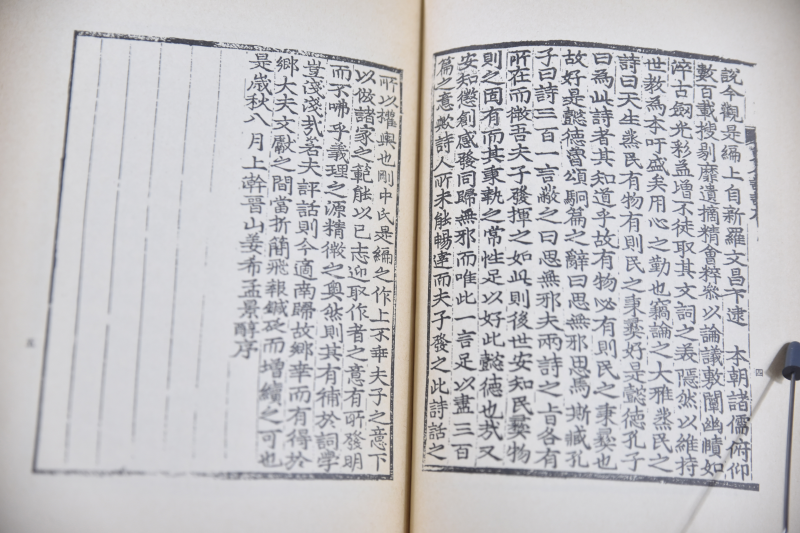 說今觀是編上自新羅文昌下逮 本朝諸儒俯仰
數百載搜剔靡遺摘精會粹叅以論議敷闡幽賾如
淬古劔光彩益增不徒取其文詞之美隱然以維持
世敎爲本吁盛矣用心之勤也竊論之大雅烝民之
詩曰天生烝民有物有則民之秉彝好是懿德孔子
曰爲此詩者其知道乎故有物必有則民之秉彝也
故好是懿德魯頌駉篇之辭曰思無邪思馬斯臧孔
子曰詩三百一言蔽之曰思無邪夫兩詩之旨各有
所在而微吾夫子發揮之如此則後世安知民彝物
則之固有而其秉執之常性足以好此懿德也哉又
安知懲創感發同歸無邪而唯此一言足以盡三百
篇之意歟詩人所未能暢達而夫子發之此詩話之
四
所以權輿也剛中氏是編之作上不乖夫子之意下
以倣諸家之範能以己志迎取作者之意有所發明
而不咈乎義理之源精微之奧然則其有補於詞學
豈淺淺哉若夫評話則今適南歸故鄉幸而有得於
鄉大夫文獻之間當折簡飛報鍼砭而增續之可也
是歲秋八月上澣晉山姜希孟景醇序
五